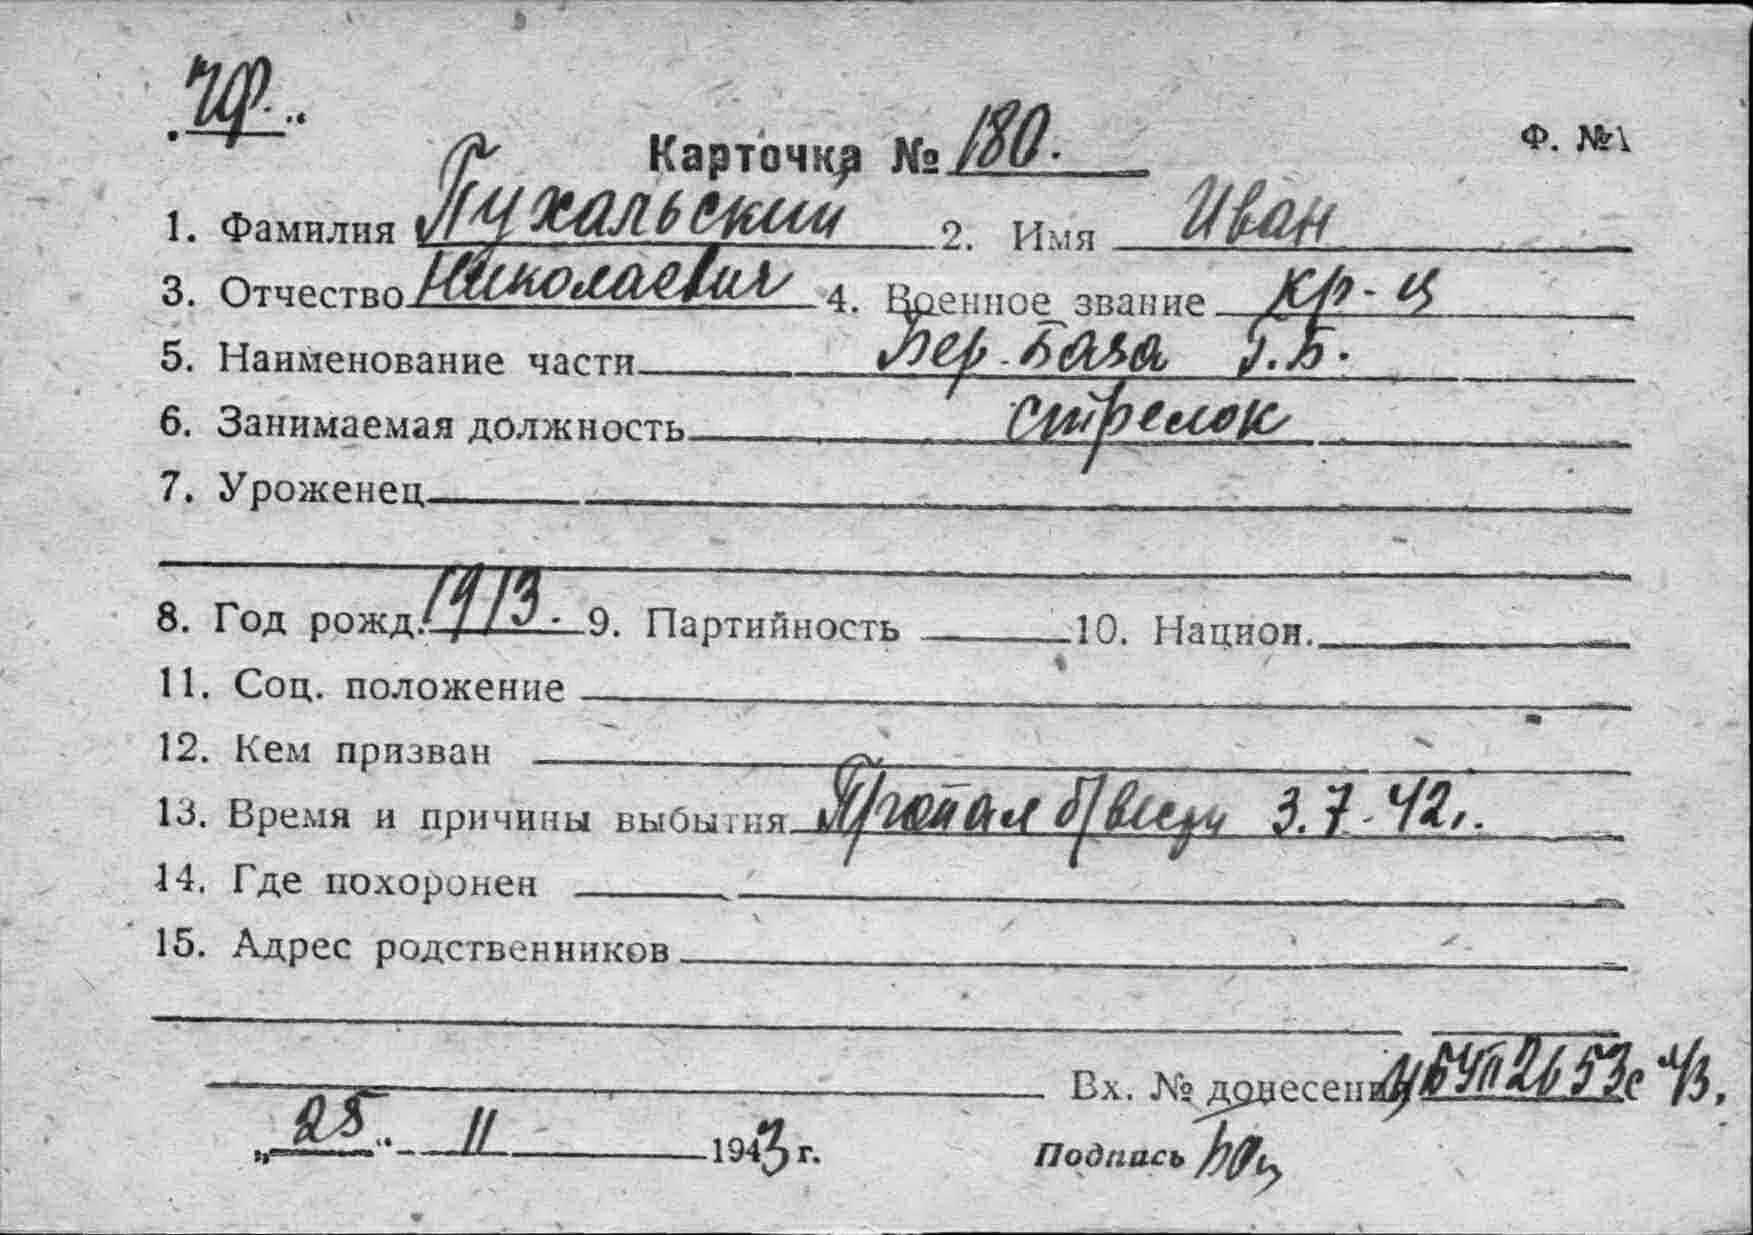 ЧФ.
Карточка № 180. Ф. №1
1. Фамилия Пухальский 2. Имя Иван
3. Отчество Николаевич 4. Военное звание кр-ц
5. Наименование части Бер. База Г.Б.
6. Занимаемая должность стрелок
7. Уроженец
8. Год рожд. 1913. 9. Партийность 10. Национ.
11. Соц. положение
12. Кем призван
13. Время и причины выбытия Пропал б/вести 3.7.42г.
14. Где похоронен
15. Адрес родственников
Вх. № донесения
„25“ 11 1943 г. Подпись